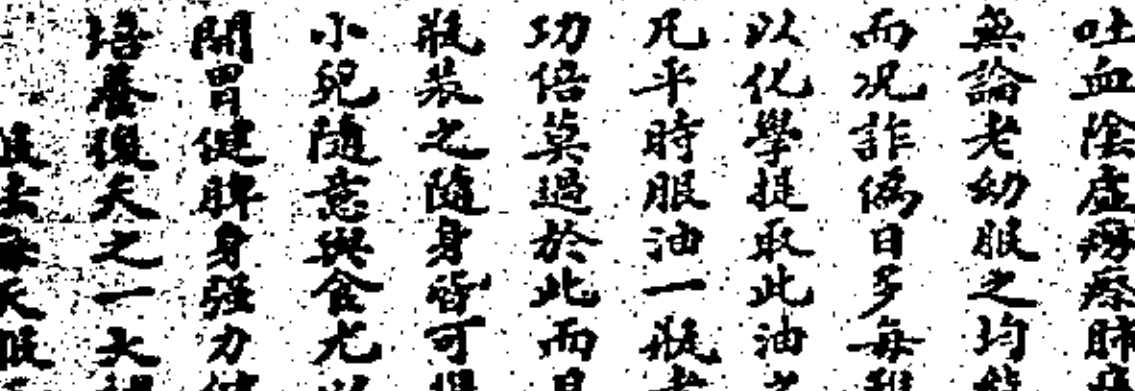 吐血陰虛癆瘵肺
無論老幼服之均
而况詐僞日多每
以化學提取此油
凡平時服油一瓶
功倍莫過於此而
瓶裝之隨身皆可
小兒隨意與食尤
開胃健脾身强力
培養後天之一大
服法每天服